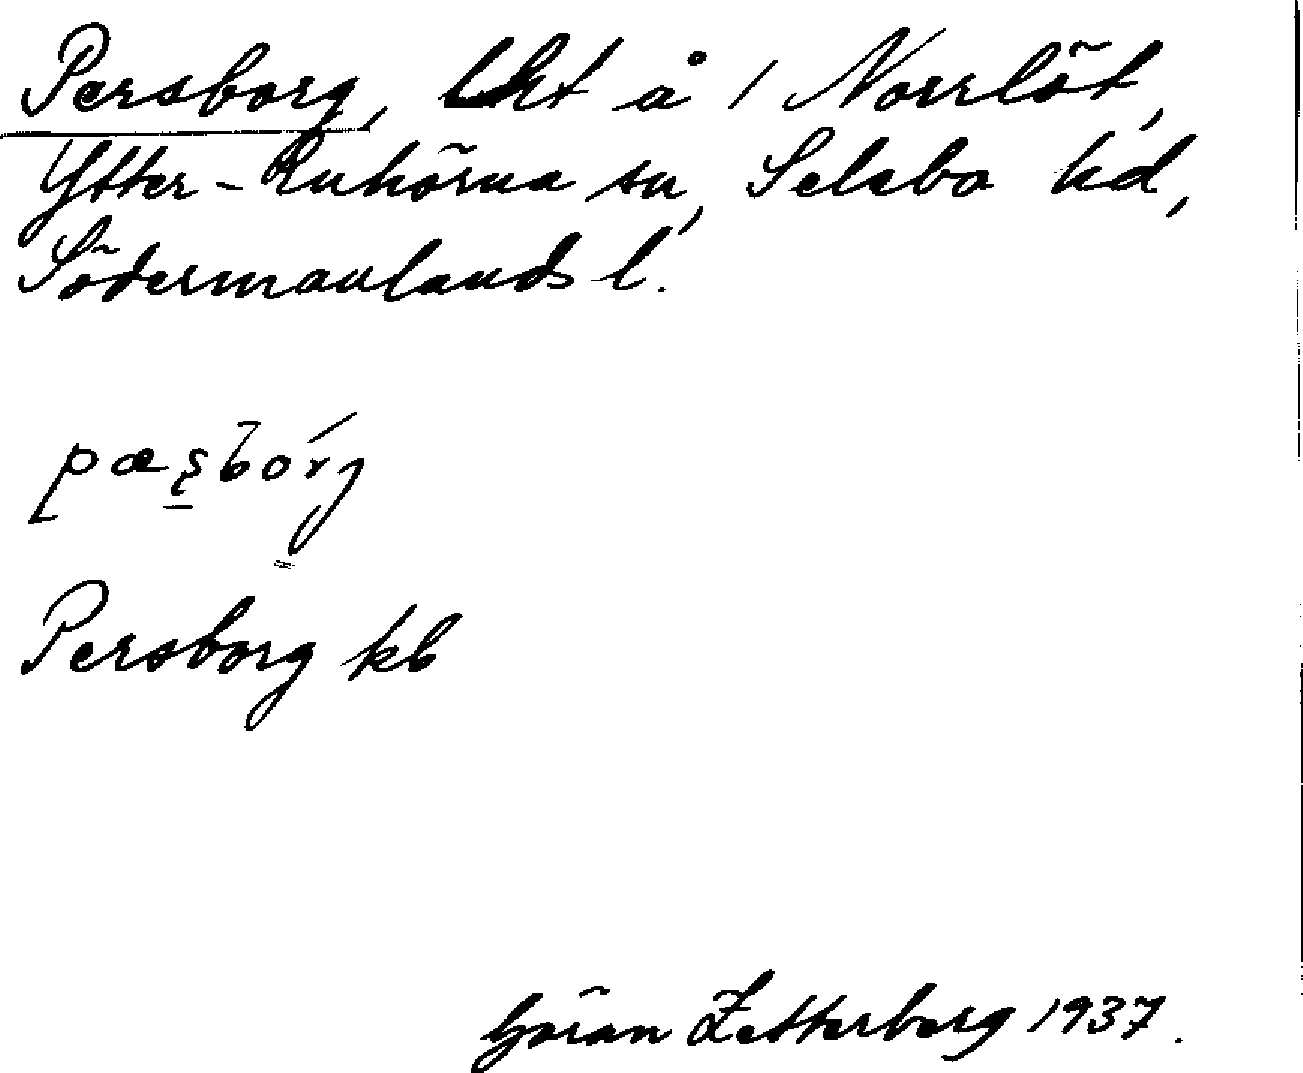 Persborg, lht å 1 Norrlöt,
Ytter-Enhörna sn, Selebo hd,
Södermanlands l.
pæʂbórj
Persborg kb
Göran Zetterberg 1937.